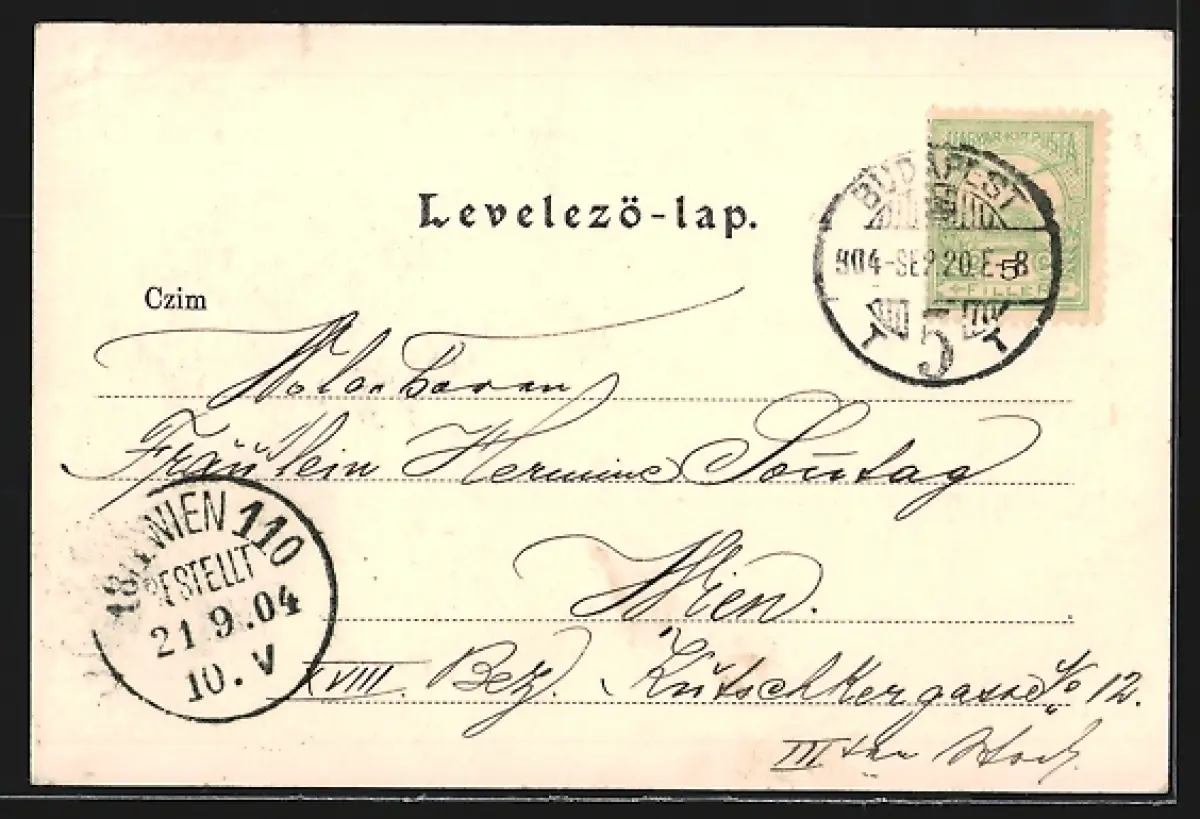 MAGYAR KIR. POSTA
BUDAPEST
904-SEP.20.E-8
5
FILLÉR
T 5 T
Levelező-lap.
Czim
Fräulein Hermine Sontag
Wien.
XVIII. Bez. Kutschkergasse No 12.
IIIter Stock
18/1 WIEN 110
BESTELLT
21.9.04
10.V